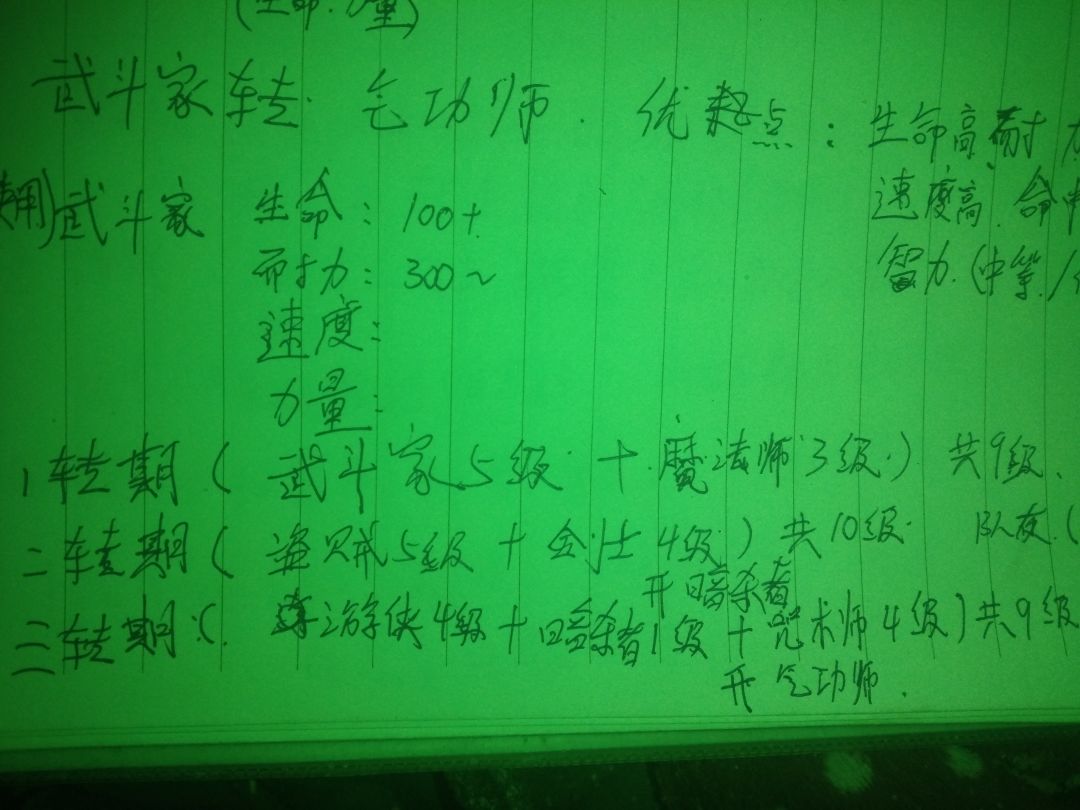 (生命.力量)
武斗家转.气功师.优起点:生命高.耐力
用)武斗家 生命:100+ 速度高.命中
耐力:300~ 智力.(中等/
速度:
力量:
1转期(武斗家5级十魔法师3级.)共9级.
二转期(盗贼5级十剑士4级.)共10级. 队友.(
开暗杀者
三转期:(游侠4级十暗杀者1级十咒术师4级)共9级
开气功师.